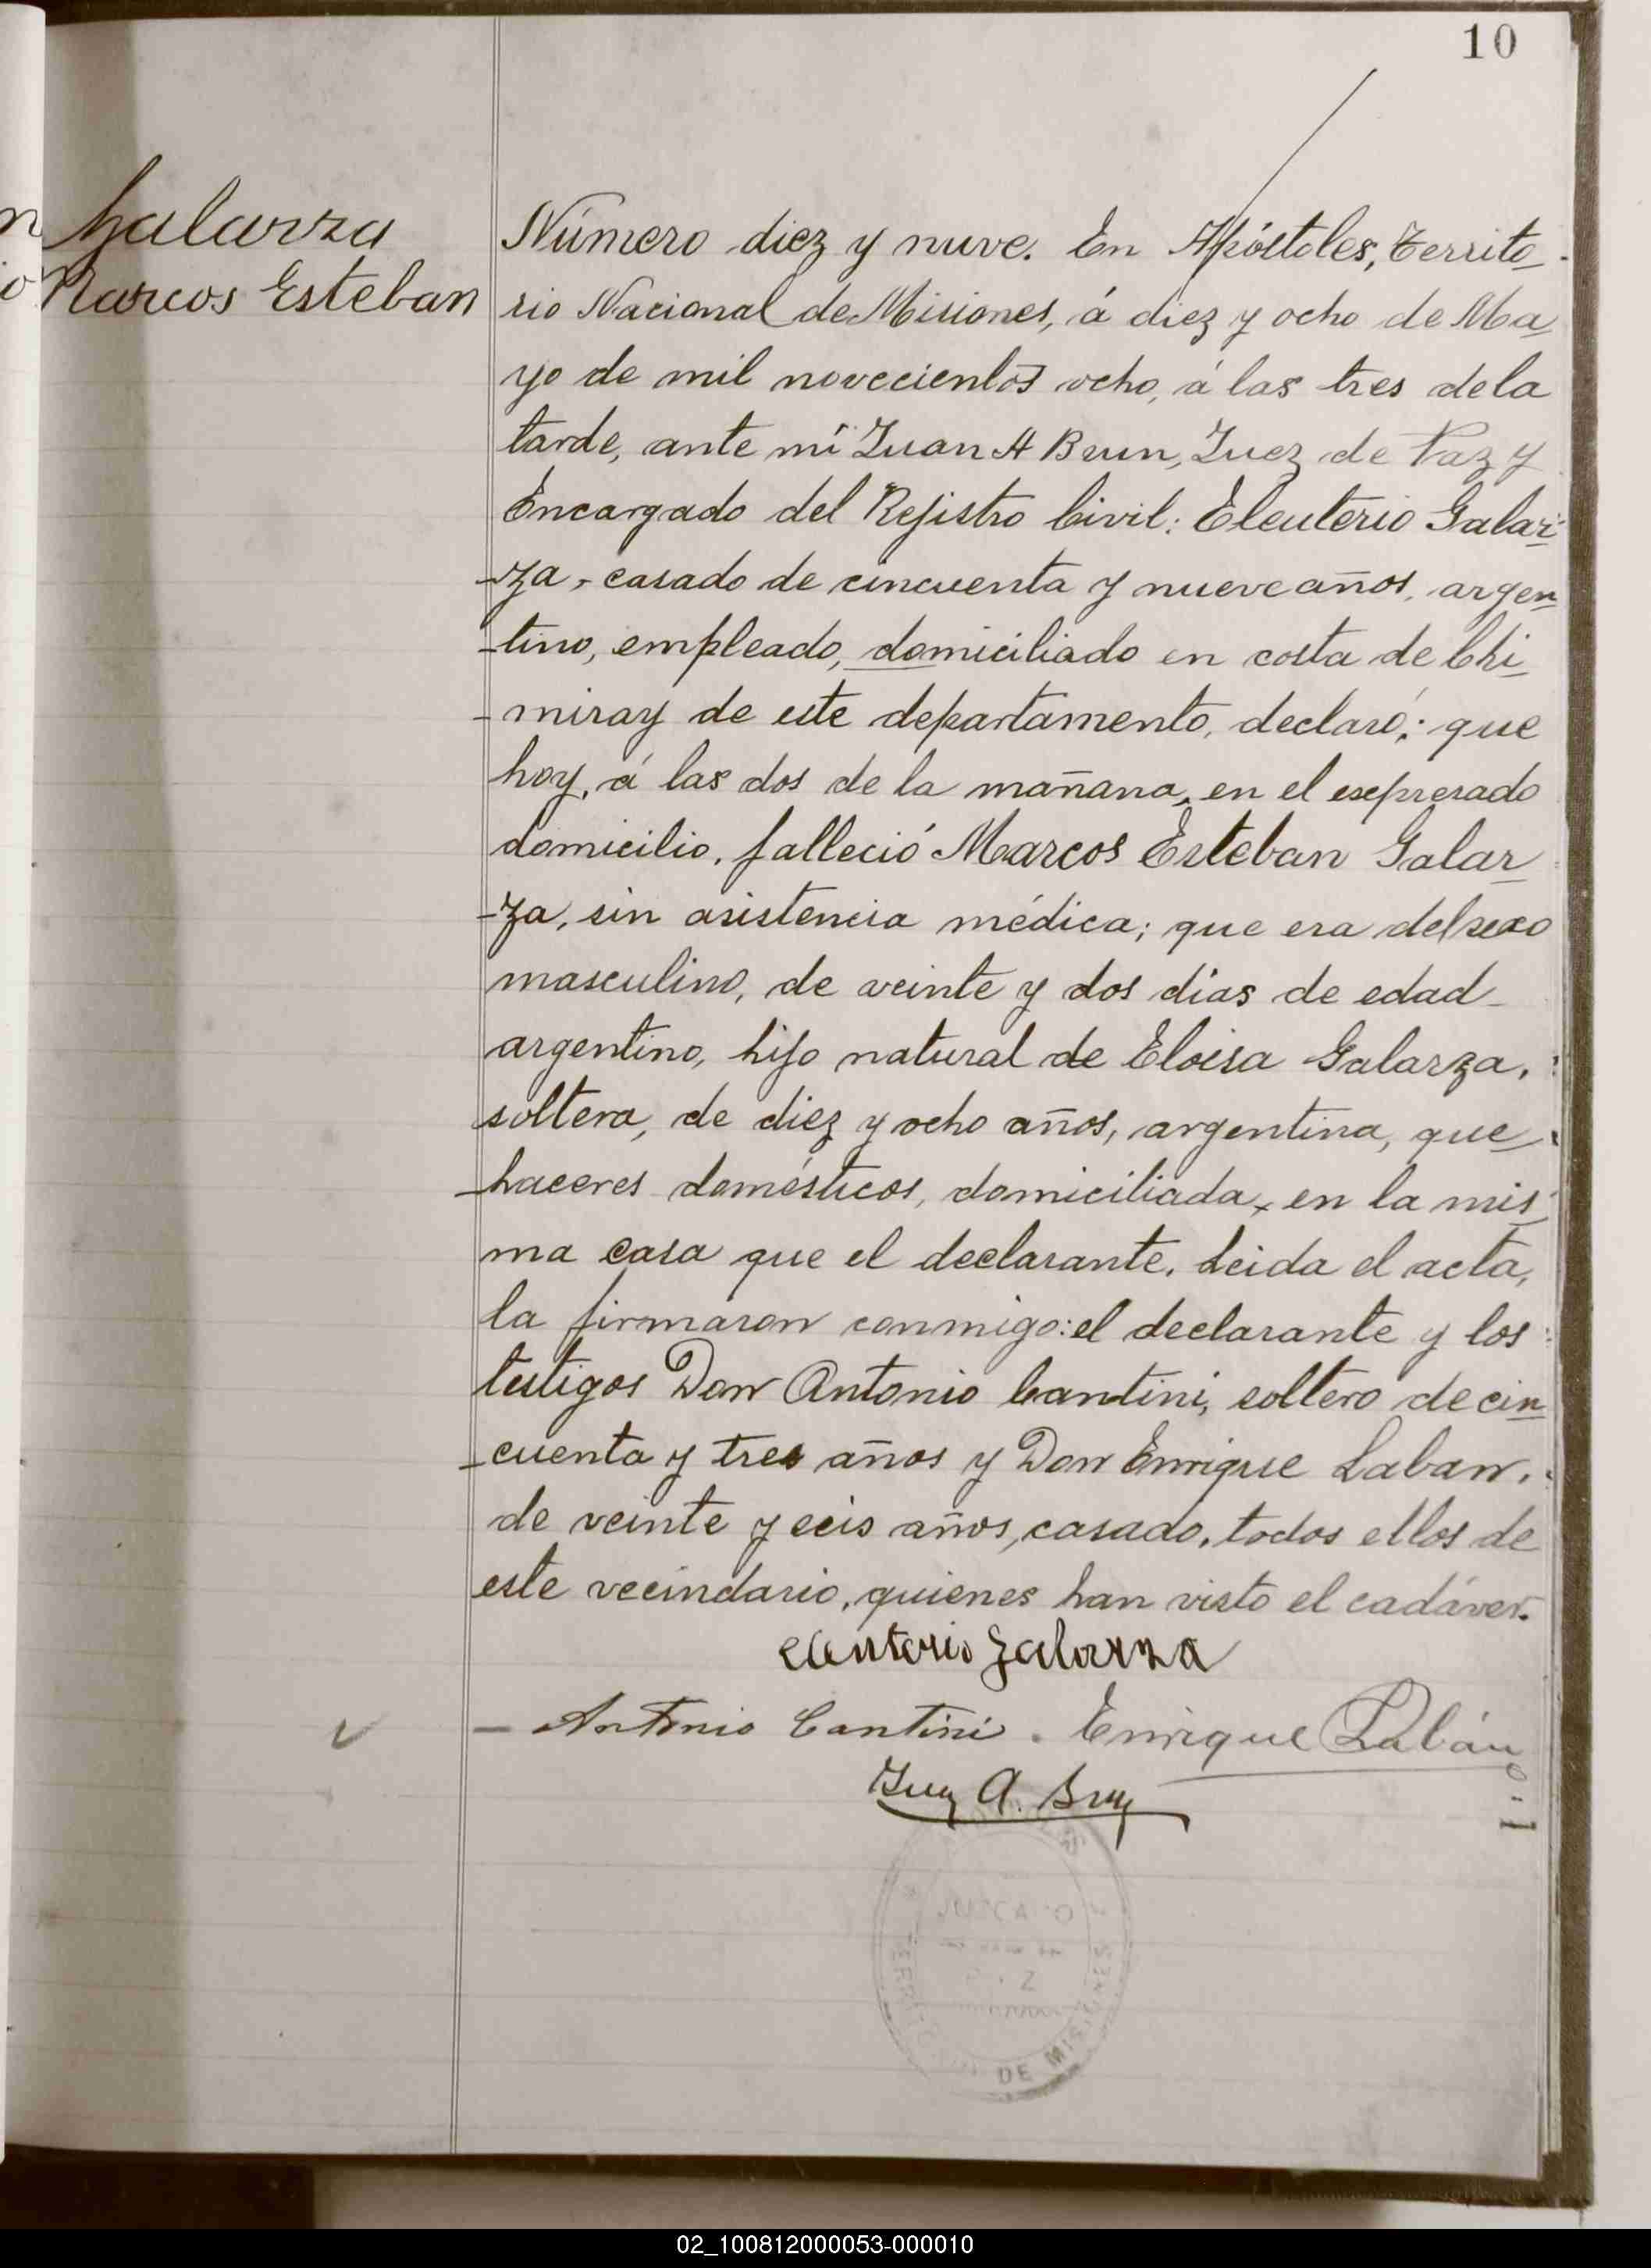 10
Galarza
Marcos Esteban
Número diez y nuve. En Apóstoles, Territo-
rio Nacional de Misiones, á diez y ocho de Ma
yo de mil novecientos ocho, á las tres de la
tarde, ante mí Juan A Brun, Juez de Paz y
Encargado del Rejistro Civil: Eleuterio Galar-
-za, casado de cincuenta y nueve años, argen
-tino, empleado, domiciliado en costa de Chi
-miray de este departamento, declaró: que
hoy, á las dos de la mañana, en el expresado
domicilio, falleció Marcos Esteban Galar
-za, sin asistencia médica; que era del sexo
masculino, de veinte y dos días de edad
argentino, hijo natural de Eloisa Galarza,
soltera, de diez y ocho años, argentina, que
-haceres domésticos, domiciliada, en la mis
ma casa que el declarante. Leida el acta,
la firmaron conmigo: el declarante y los
testigos Don Antonio Cantini, soltero de cin
-cuenta y tres años y Don Enrique Laban,
de veinte y seis años, casado, todos ellos de
este vecindario, quienes han visto el cadáver.
Eleuterio Galarza
Antonio Cantini. Enrique Labán
Juan A. Brun
DE MISIONES
02_100812000053-000010